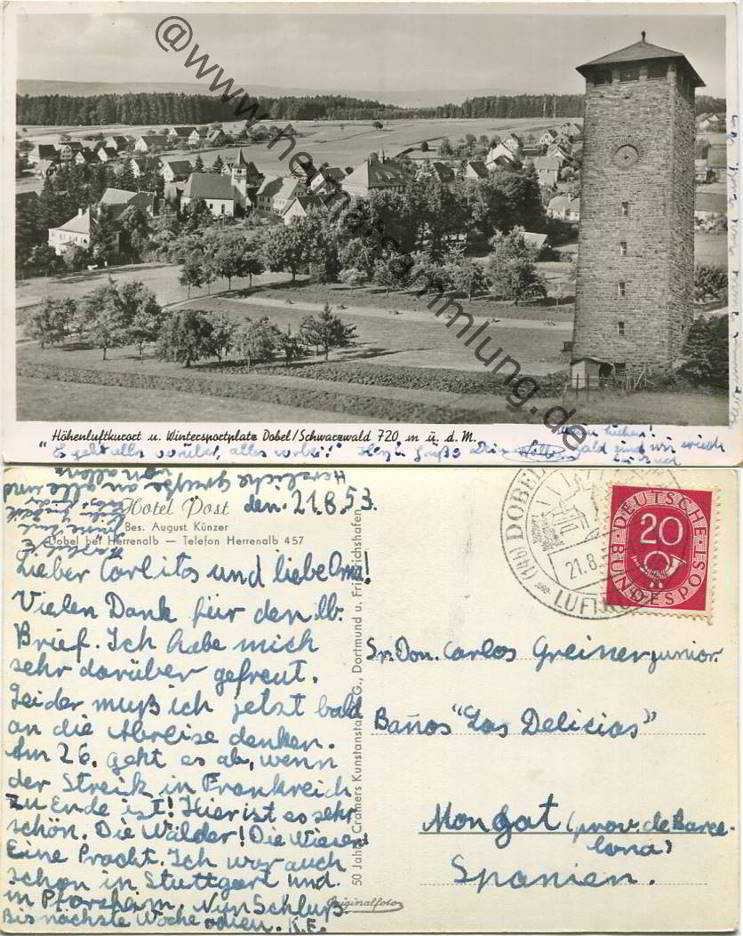 @www.heimatsammlung.de
Höhenluftkurort u. Wintersportplatz Dobel/Schwarzwald 720 m ü. d. M.
"Es geht alles vorüber, alles vorbei!"
bald sind wir wieder
Herzliche Grüße an alle und
von allen
Hotel Post
den. 21.8.53.
Bes. August Künzer
Dobel bei Herrenalb — Telefon Herrenalb 457
Lieber Carlitos und liebe Oma!
Vielen Dank für den lb.
Brief. Ich habe mich
sehr darüber gefreut.
Leider muß ich jetzt bald
an die Abreise denken.
Am 26. geht es ab, wenn
der Streik in Frankreich
zu Ende ist! Hier ist es sehr
schön. Die Wälder! Die Wiesen
Eine Pracht. Ich war auch
schon in Stuttgart und
in Pforzheim. Nun Schluß.
Bis nächste Woche
50 Jahre Cramers Kunstanstalt
G., Dortmund u. Friedrichshafen
Originalfoto
DOBEL
(14a)
21.8.
LUFTKU
DEUTSCHE
BUNDESPOST
20
Sr. Don. Carlos Greiner junior.
Baños "Las Delicias"
Mongat (prov. de Barce-
lona)
Spanien.